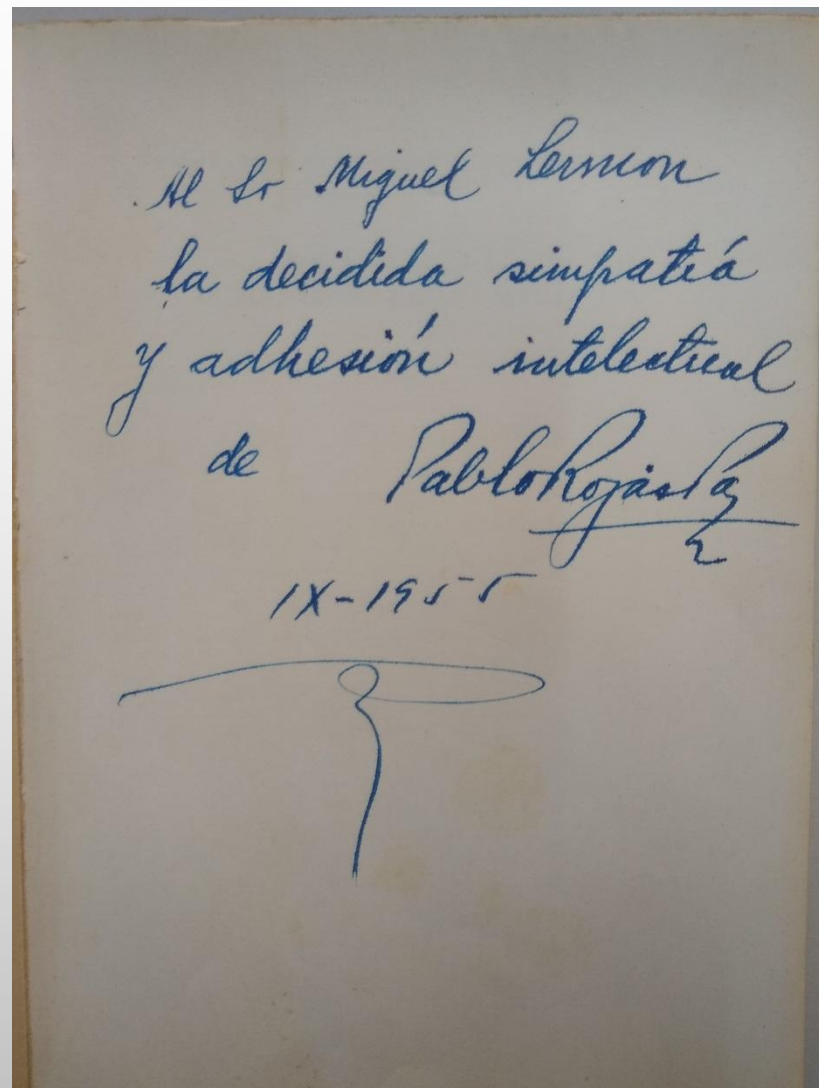 Al Sr Miguel Lermon
la decidida simpatía
y adhesión intelectual
de Pablo Rojas Paz
IX-1955